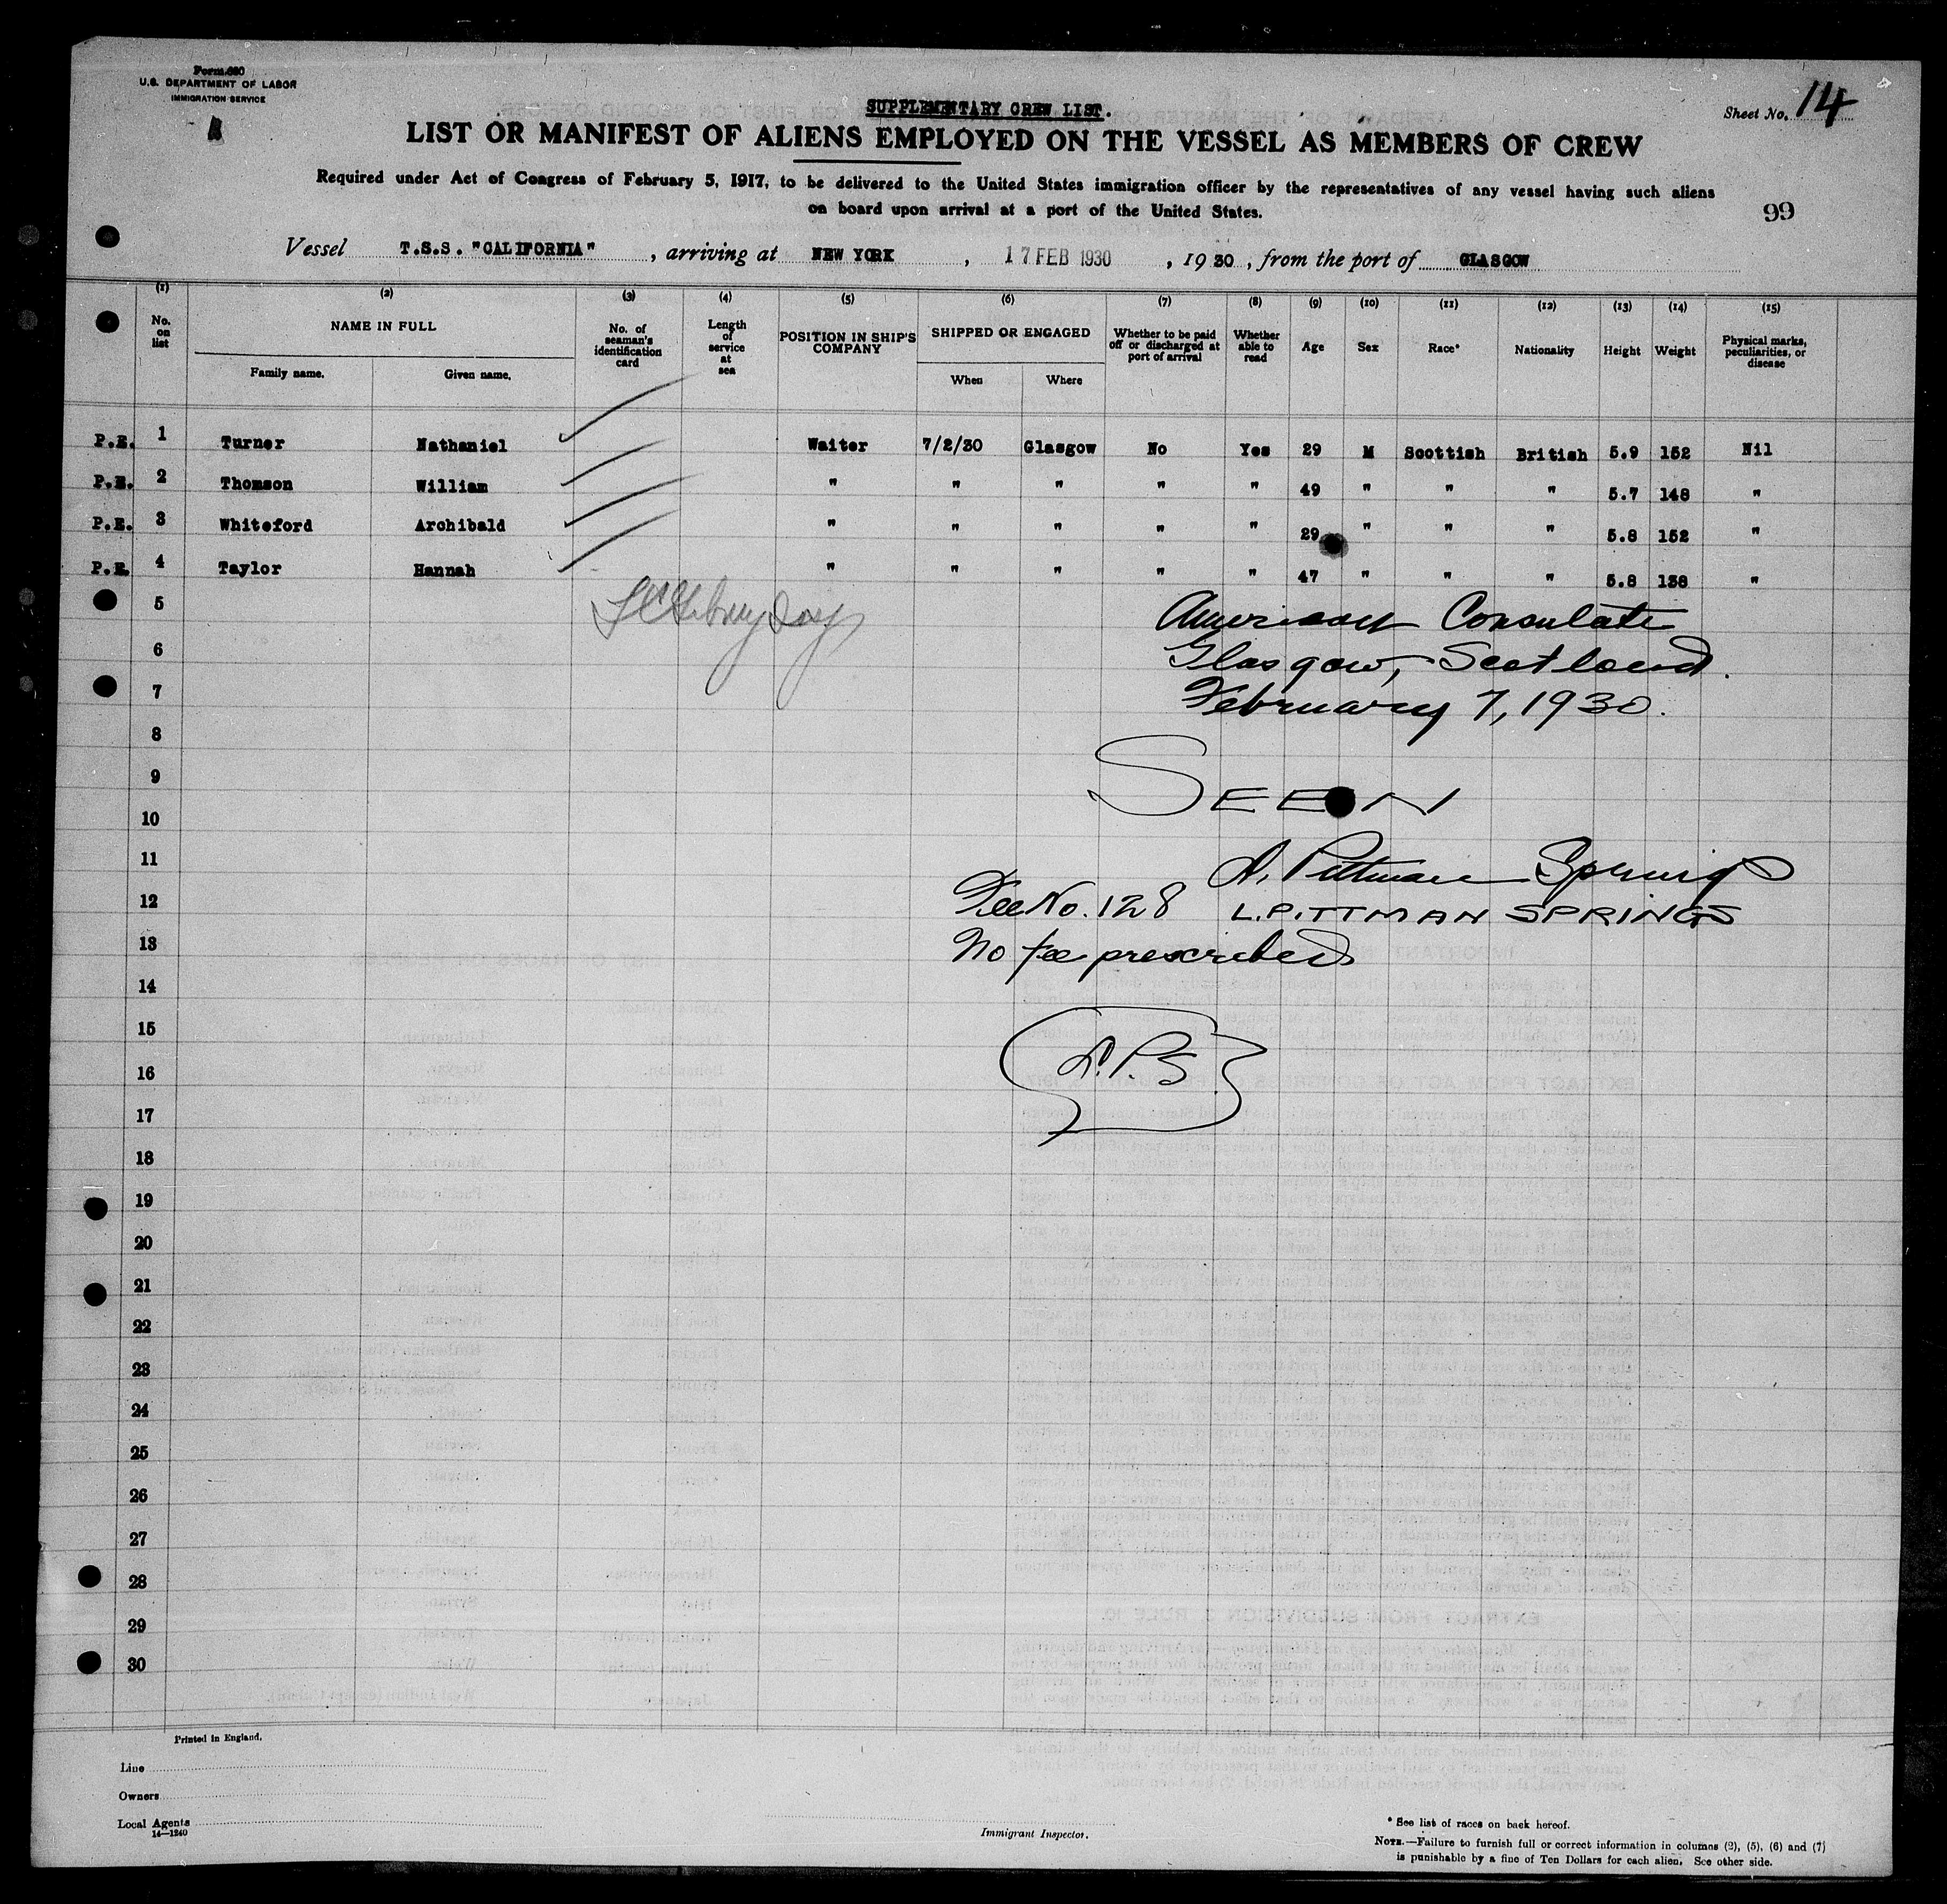 Form 680
U.S. DEPARTMENT OF LABOR
IMMIGRATION SERVICE
SUPPLEMENTARY CREW LIST.
Sheet No. 14
LIST OR MANIFEST OF ALIENS EMPLOYED ON THE VESSEL AS MEMBERS OF CREW
Required under Act of Congress of February 5, 1917, to be delivered to the United States immigration officer by the representatives of any vessel having such aliens
on board upon arrival at a port of the United States.
99
Vessel T.S.S. "CALIFORNIA", arriving at NEW YORK, 17 FEB 1930, 1930, from the port of GLASGOW
(1) (2) (3) (4) (5) (6) (7) (8) (9) (10) (11) (12) (13) (14) (15)
No. on list NAME IN FULL Family name. Given name. No. of seaman's identification card Length of service at sea POSITION IN SHIP'S COMPANY SHIPPED OR ENGAGED When Where Whether to be paid off or discharged at port of arrival Whether able to read Age Sex Race* Nationality Height Weight Physical marks, peculiarities, or disease
P.E. 1 Turner Nathaniel Waiter 7/2/30 Glasgow No Yes 29 M Scottish British 5.9 152 Nil
P.E. 2 Thomson William " " " " " 49 " " " 5.7 148 "
P.E. 3 Whiteford Archibald " " " " " 29 " " " 5.8 152 "
P.E. 4 Taylor Hannah " " " " " 47 " " " 5.8 138 "
5
American Consulate
6
Glasgow, Scotland.
7
February 7, 1930.
8
9
SEEN
10
11
L. Pittman Springs
12
Fee No. 128 L. PITTMAN SPRINGS
13
No fee prescribed
14
15
L.P.S.
16
17
18
19
20
21
22
23
24
25
26
27
28
29
30
Printed in England.
Line
Owners
Local Agents
14—1240
Immigrant Inspector.
* See list of races on back hereof.
NOTE.—Failure to furnish full or correct information in columns (2), (5), (6) and (7)
is punishable by a fine of Ten Dollars for each alien. See other side.